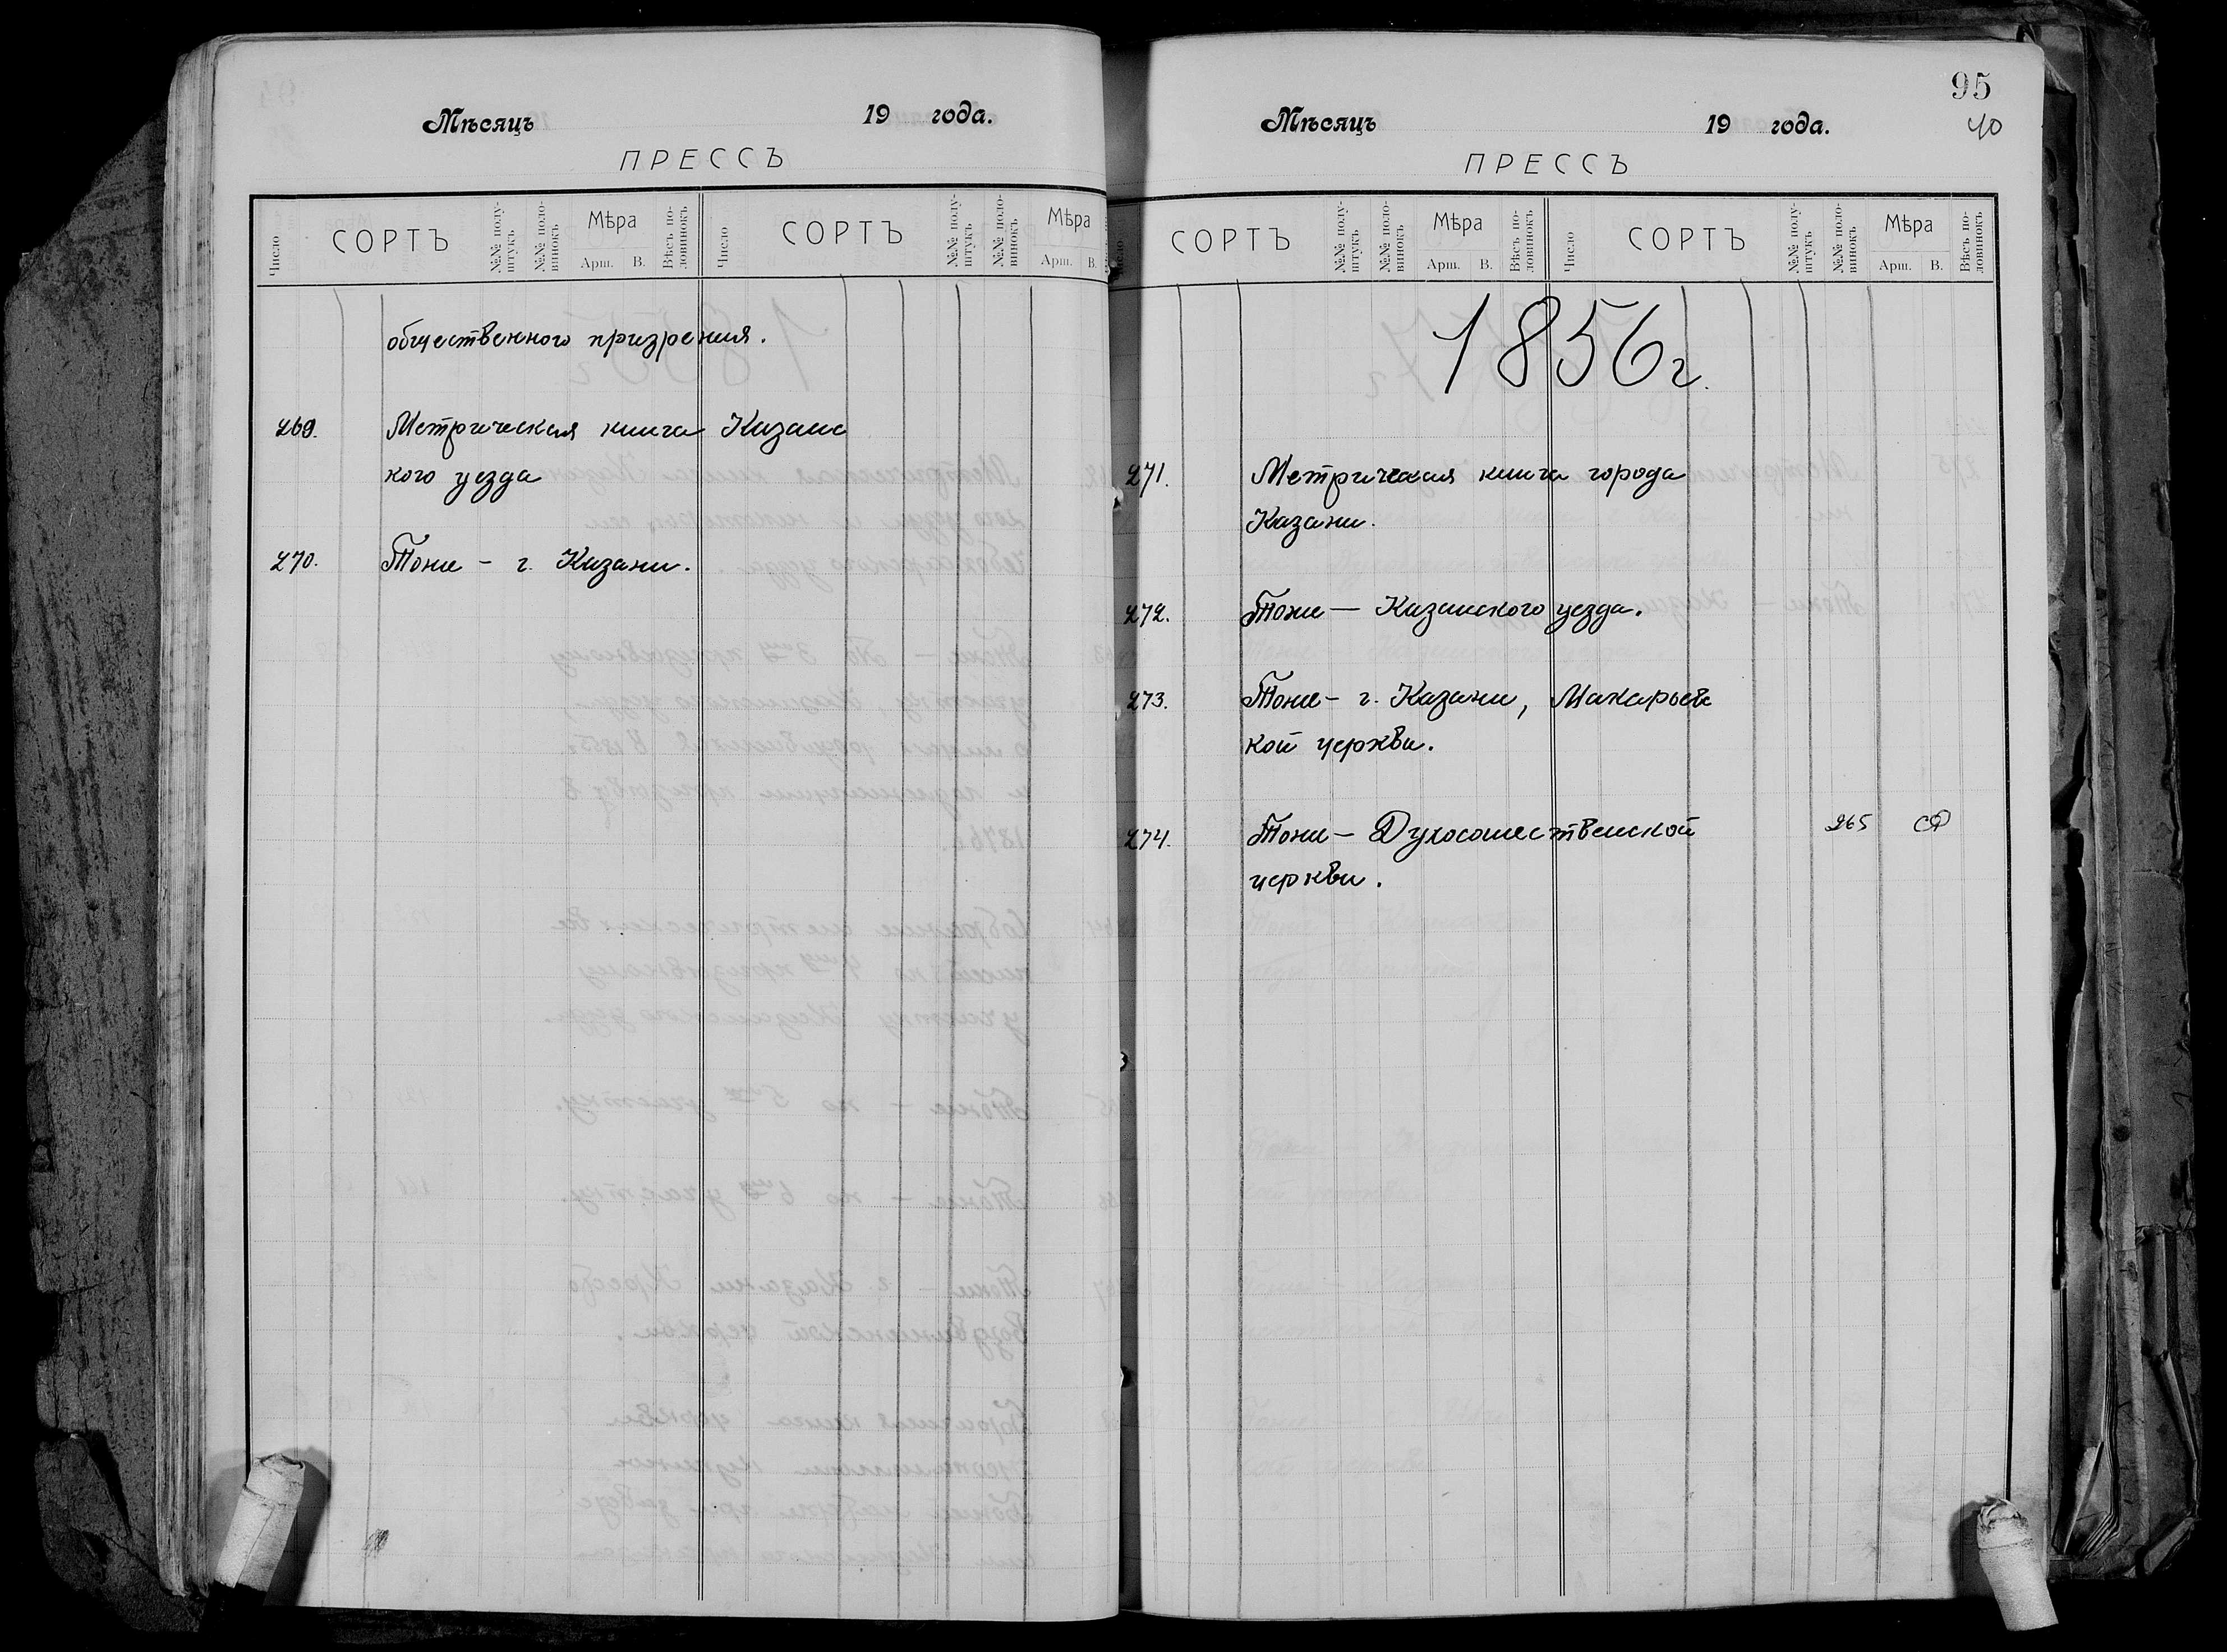 Мѣсяцъ 19 года.
ПРЕССЪ
Число СОРТЪ №№ полу-штукъ №№ поло-винокъ Мѣра Арш. В. Вѣсъ по-ловинокъ Число СОРТЪ №№ полу-штукъ №№ поло-винокъ Мѣра Арш. В.
общественного призрения.
269. Метрическая книга Казанс
кого уезда
270. Тоже - г. Казани.
95
40
Мѣсяцъ 19 года.
ПРЕССЪ
Число СОРТЪ №№ полу-штукъ №№ поло-винокъ Мѣра Арш. В. Вѣсъ по-ловинокъ Число СОРТЪ №№ полу-штукъ №№ поло-винокъ Мѣра Арш. В. Вѣсъ по-ловинокъ
1856 г.
271. Метрическая книга города
Казани.
272. Тоже — Казанского уезда.
273. Тоже - г. Казани, Макарьевс
кой церкви.
274. Тоже - Духосошественской 265
церкви.